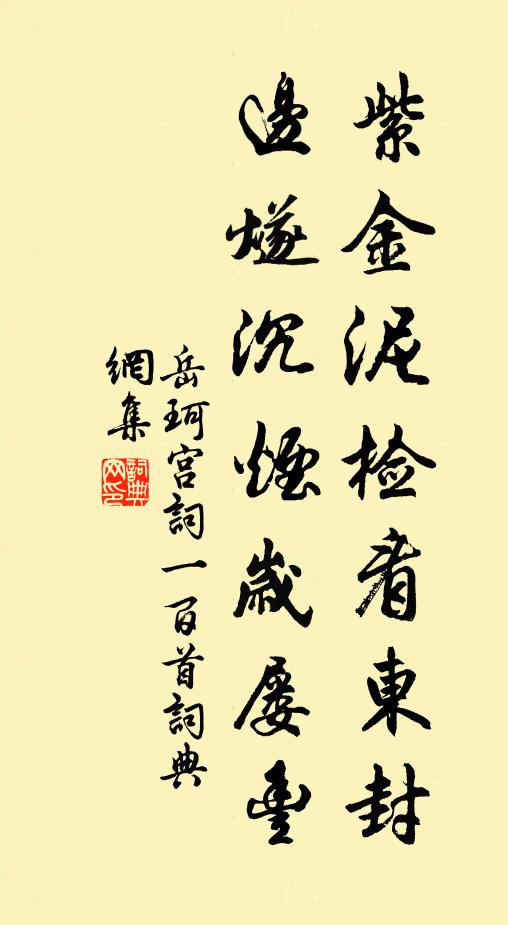 紫金泥檢看東封
邊燧沉煙歲屢豐
岳珂宮詞一百首詞典
網集
詞典網印